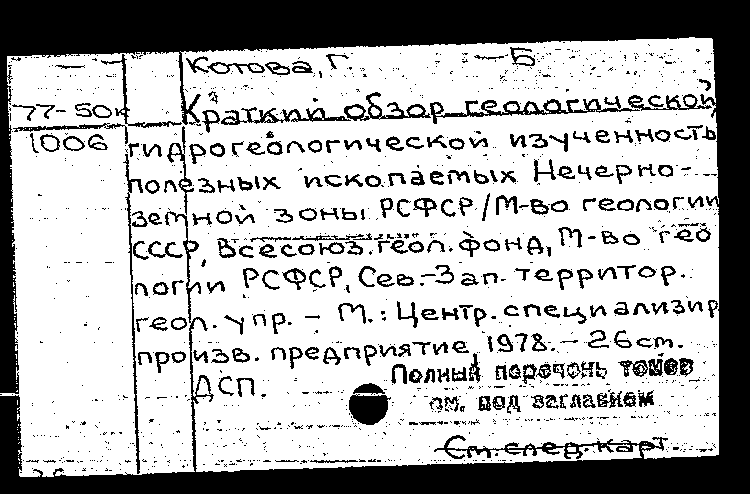 Котова, Г. — Б
77-50к Краткий обзор геологической,
1006 гидрогеологической изученность
полезных ископаемых Нечерно-
земной зоны РСФСР / М-во геологии
СССР, Всесоюз. геол. фонд, М-во гео
логии РСФСР, Сев.-Зап. территор.
геол. упр. - М.: Центр. специализир
произв. предприятие, 1978. - 26 см.
ДСП.
Полный перечень томов
см. под заглавием
См. след. карт.